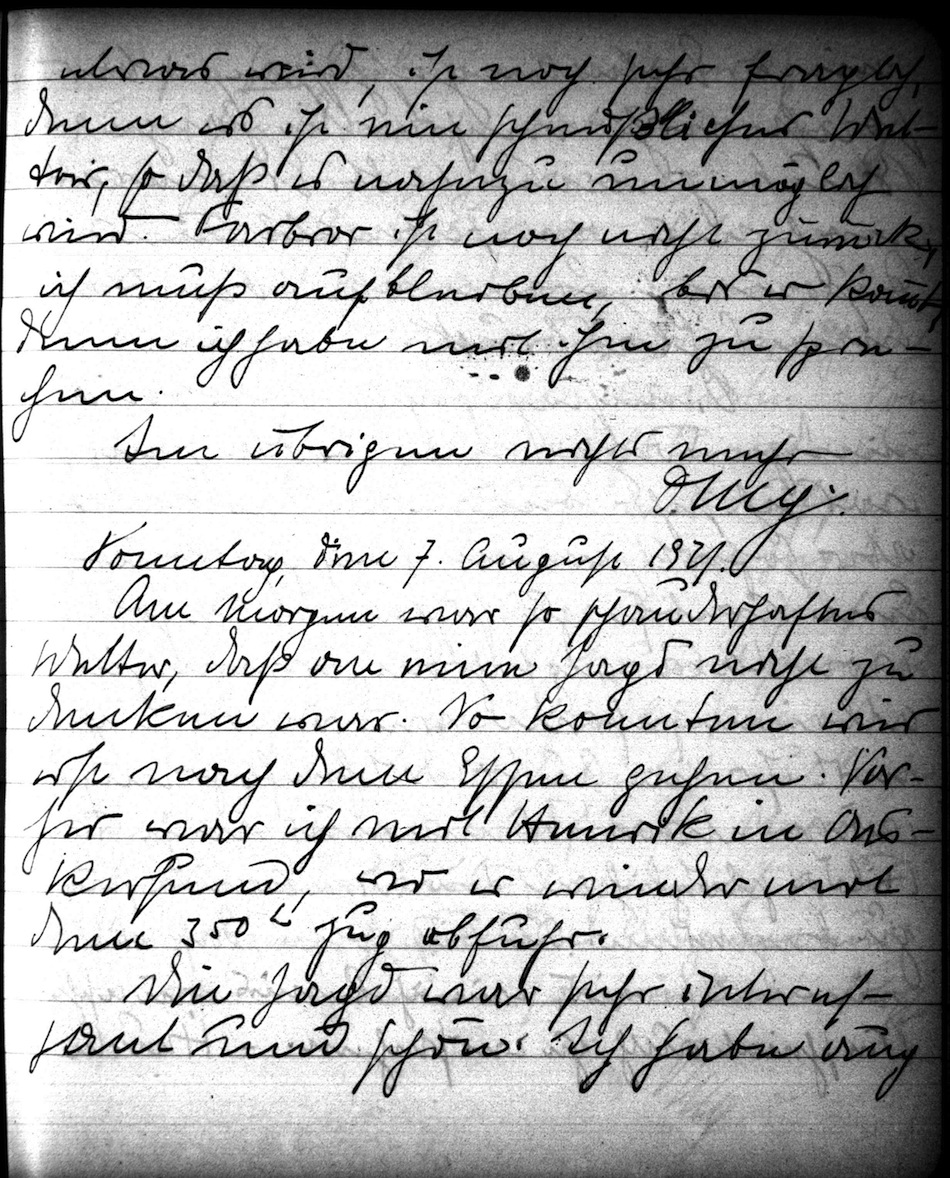 etwas wird, ist noch sehr fraglich,
denn es ist ein scheußliches Wet-
ter, so daß es nahezu unmöglich
wird. Farbror ist noch nicht zurück,
ich muß aufbleiben, bis er kommt,
denn ich habe mit ihm zu spre-
chen.
Im übrigen nichts mehr
Sonntag, den 7. August 1921.
Am Morgen war so schauderhaftes
Wetter, daß an eine Jagd nicht zu
denken war. So konnten wir
erst nach dem Essen gehen. Vor-
her war ich mit Henrik in Os-
karström, wo er wieder mit
dem 350 Zug abfuhr.
Die Jagd war sehr interes-
sant und schön. Ich habe auch